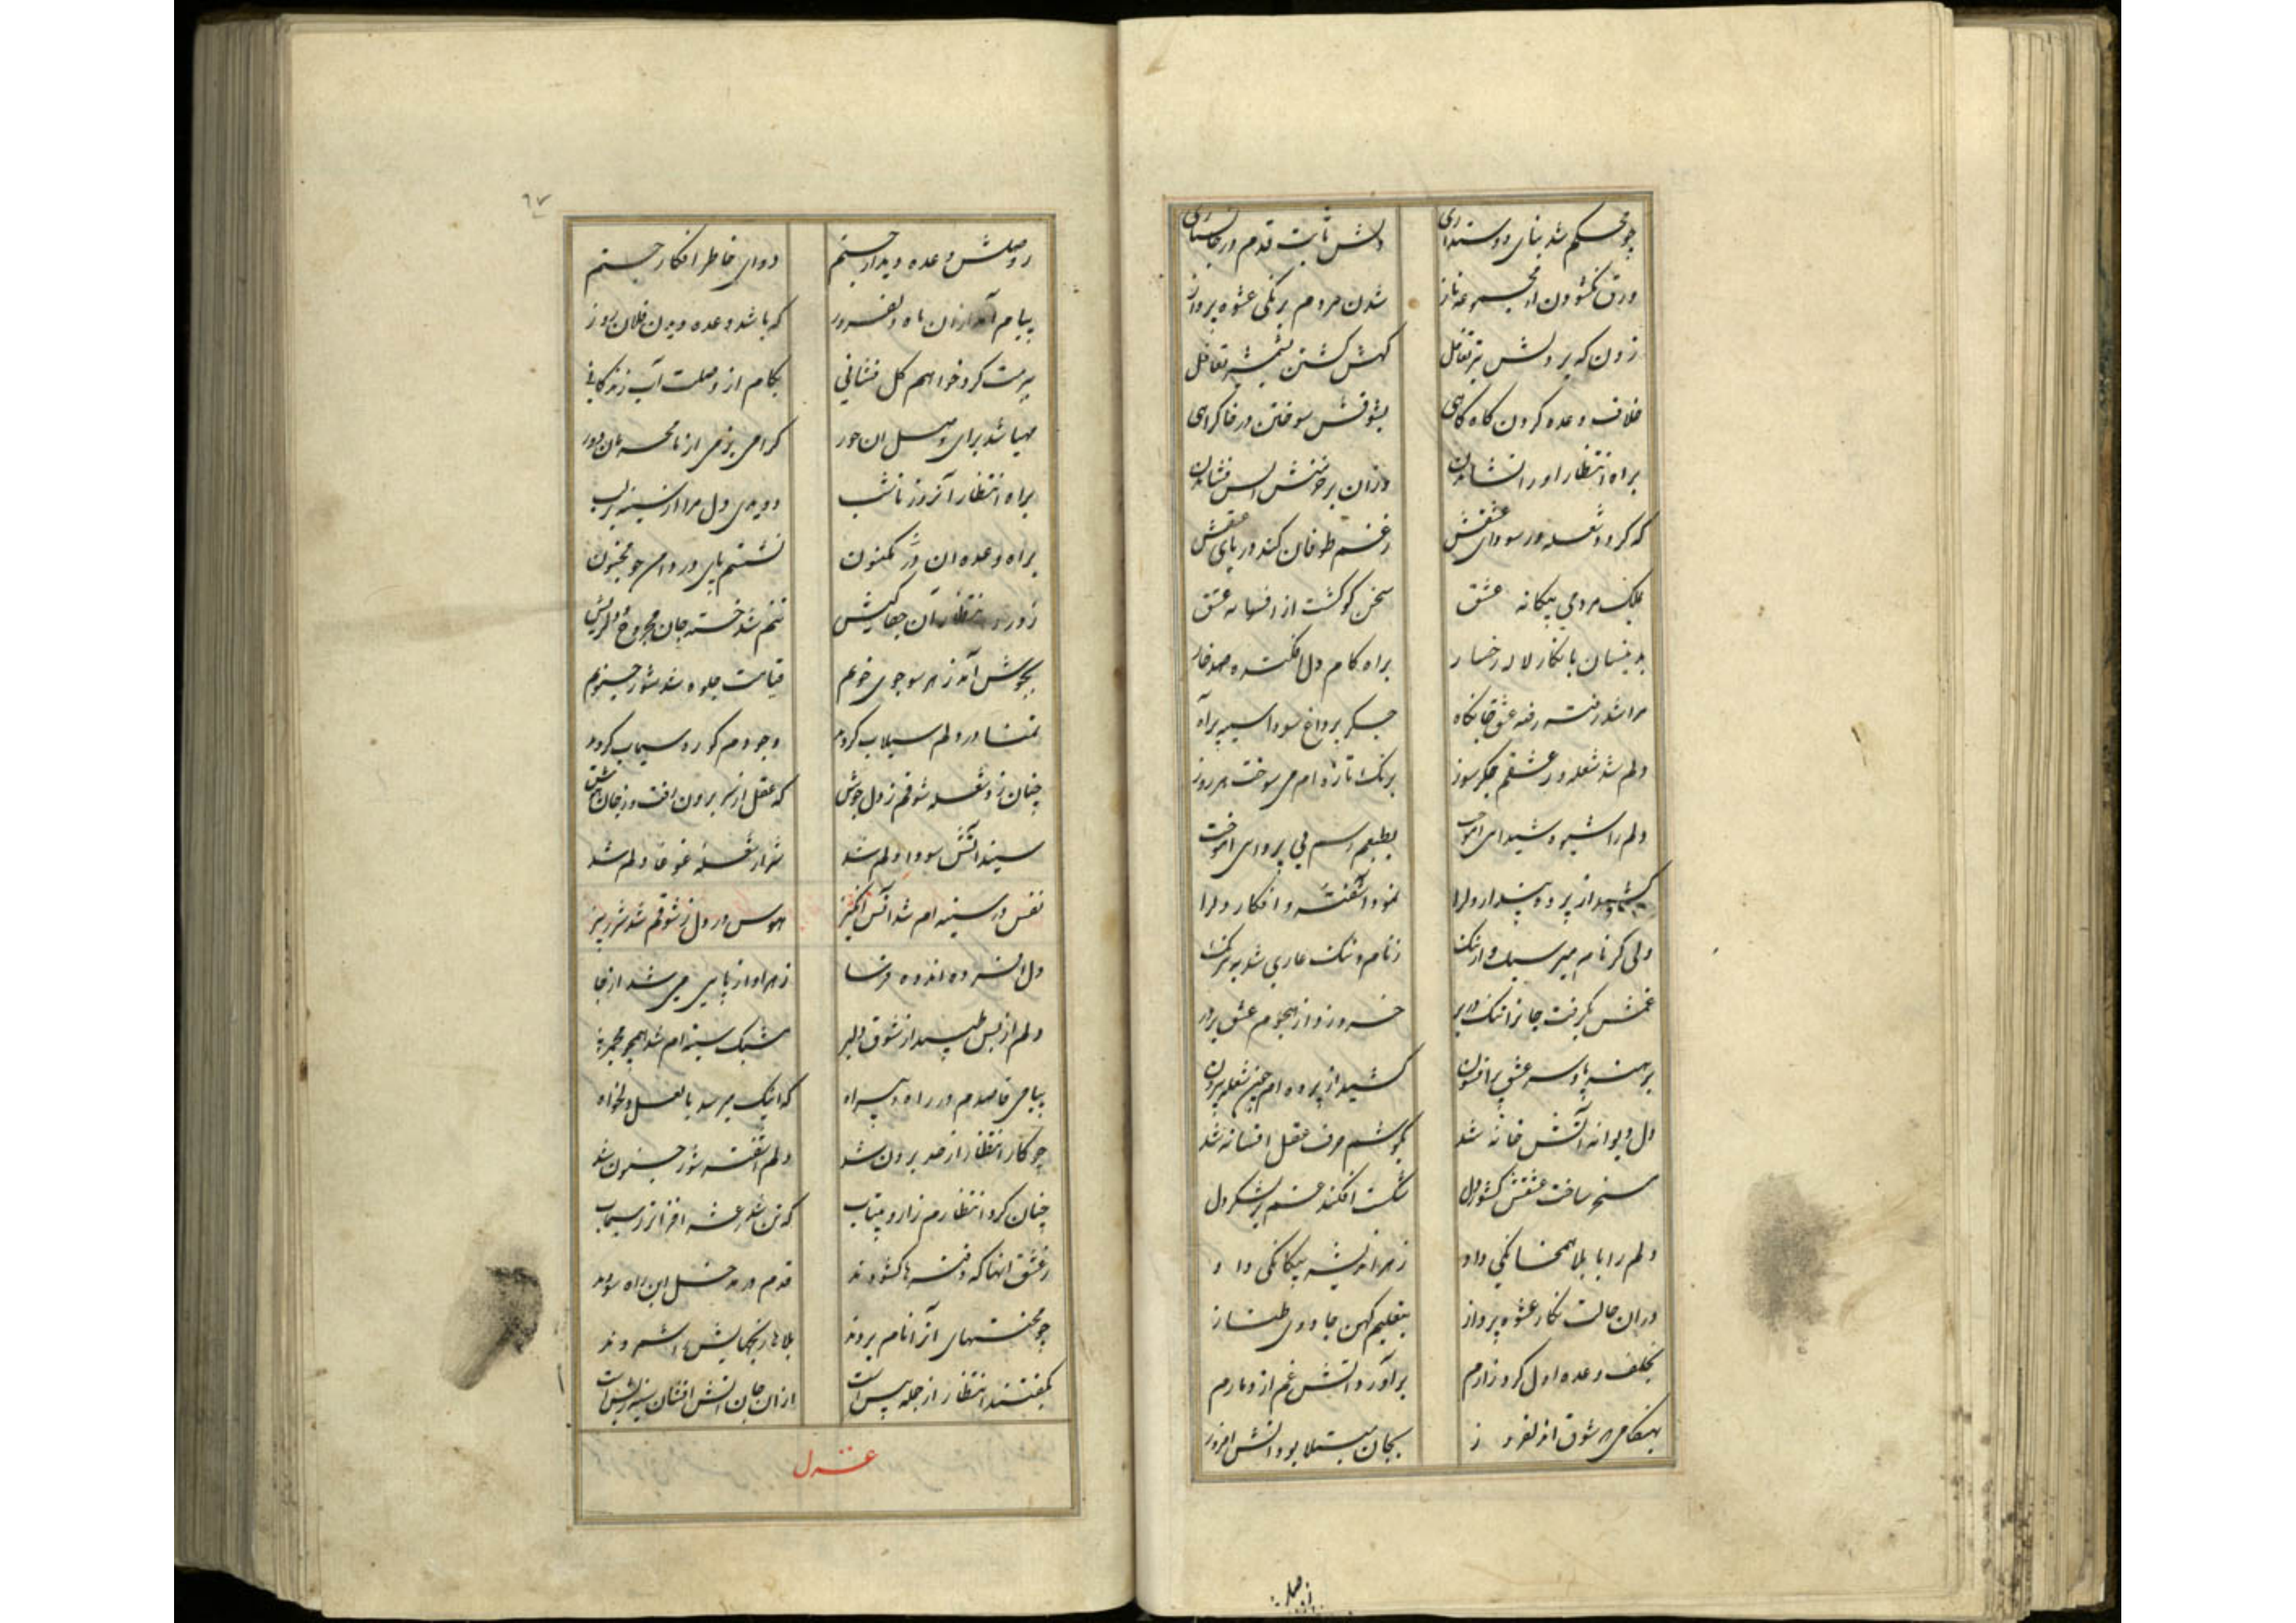 چو محکم شد بنای دوستداری دلش ثابت قدم در جانسپاری
ورق نکشودن از مجموعه ناز شدن مردم برنکی عشوه پرواز
زدن که بر دلش تیر تغافل کهش کشتن بشمشیر تغافل
خلاف وعده کردن کاه کاهی بشوقش سوختن در خاک راهی
براه انتظار او را نشاندن وزان بر خرمنش آتش فشاندن
که کرد شعله در سودای عشقش ز غم طوفان کند دریای عشقش
بملک مردمی بیکانه عشق سخن کو کشت از افسانه عشق
بدینسان با نکار لاله رخسار براه کام دل افکنده صد خار
مرا شد رفته رفته عشق جانکاه جکر پر داغ سودا سینه پر آه
دلم شد شعله ور عشقم جکر سوز برنک تازه ام می سوخت هر روز
دلم را شیوه شیدای اموخت بطبعم رسم بی پروای اموخت
کشید از پرده پندار دلرا نمود آشفته و افکار دلرا
ولی کز نام میر سید وار ننک ز نام و ننک عاری شد بیرنک
غمش بکرفت جانرا تنک در بر خرد زد از هجوم عشق بر در
برهنه پا و سر عشق پر افسون کشید از پرده ام چون شعله بیرون
دل دیوانه آتش خانه شد بکوشم حرف عقل افسانه شد
مسخر ساخت عشقش کشور دل شکست افکند غم بر لشکر دل
دلم را با بلا همخانکی داد ز هر اندیشه بیکانکی داد
در ان حالت نکار عشوه پرداز بتعلیم کهن جادوی طناز
بخلف وعده اول کرد زارم برآورد آتش غم از دمارم
بهنکامی که شوق اندلفروز بجان مبتلا بود آتش افروز
از وصلـ
٦٧
ز وصلش وعده دیدار جستم دوای خاطر افکار جستم
پیام آمد از ان ماه دلفروز که باشد وعده دیدن فلان روز
سرمت کرد خواهم کل فشانی بکام از وصلت آب زندکانی
مهیا شد برای وصل ان حور کرامی بزمی از نامحرمان دور
براه انتظار آنروز تا شب دویدی دل مرا از سینه بر لب
براه وعده ان در مکنون نشستم پای در دامن چو مجنون
ز درد انتظار آن جفاکیش تنم شد خسته جان مجروح و دلریش
بجوش آمد ز هر سو جوی خونم قیامت جلوه شد شور جنونم
تمنا در دلم سیلاب کردم وجودم کوره سیماب کردند
چنان زد شعله شوقم ز دل جوش که عقل از سر برون رفت و ز جان هوش
سپند آتش سودا دلم شد شرار شعله غوغا دلم شد
نفس در سینه ام شد آتش انکیز هوس در دل ز شوقم شد شرر ریز
دل افسرده اندوه فرسا ز هر آواز پایی می شد از جا
دلم از بس طپید از شوق دلبر مشبک سینه ام شد همچو مجمر
پیامی قاصدم در راه و بیراه که اینک میرسد با لعل دلخواه
چو کار انتظار از حد برون شد دلم آشفته شور جنون شد
چنان کرد انتظارم زار و بیتاب که تن شد رعشه افزاتر ز سیماب
ز عشق انها که دفترها کشودند قدم در مدخل این راه سودند
چو محنتهای آنرا نام بردند بلاها رنجهایش را شمردند
بکفتند انتظار از جمله بیش است از ان جان آتش افشان سینه ریش است
غزل